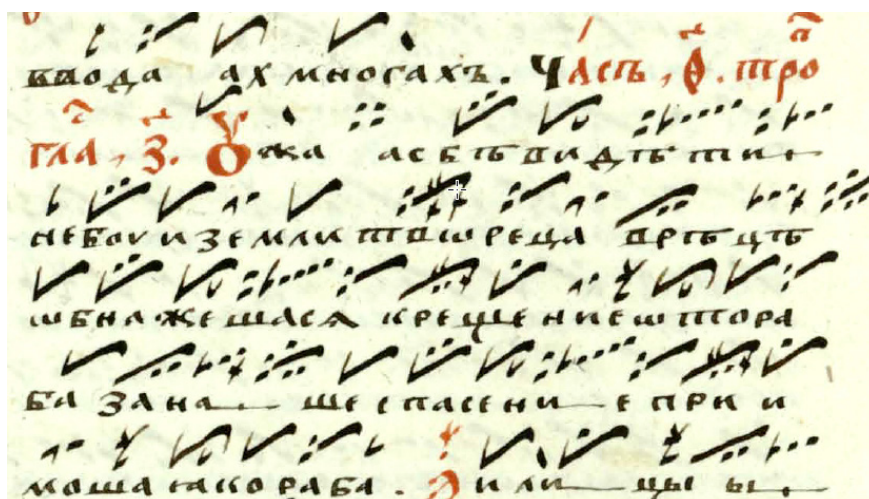 бвода ах многахъ. Часъ, ѳ. тро
гла, з. Ѹжа асѣ бѣ видѣти
небоу и земли твореца врѣцѣ
ѡбнажешася крещение ѿ тора
ба за на ше спасени е при и
моша ꙗко раба. и ли цы ы